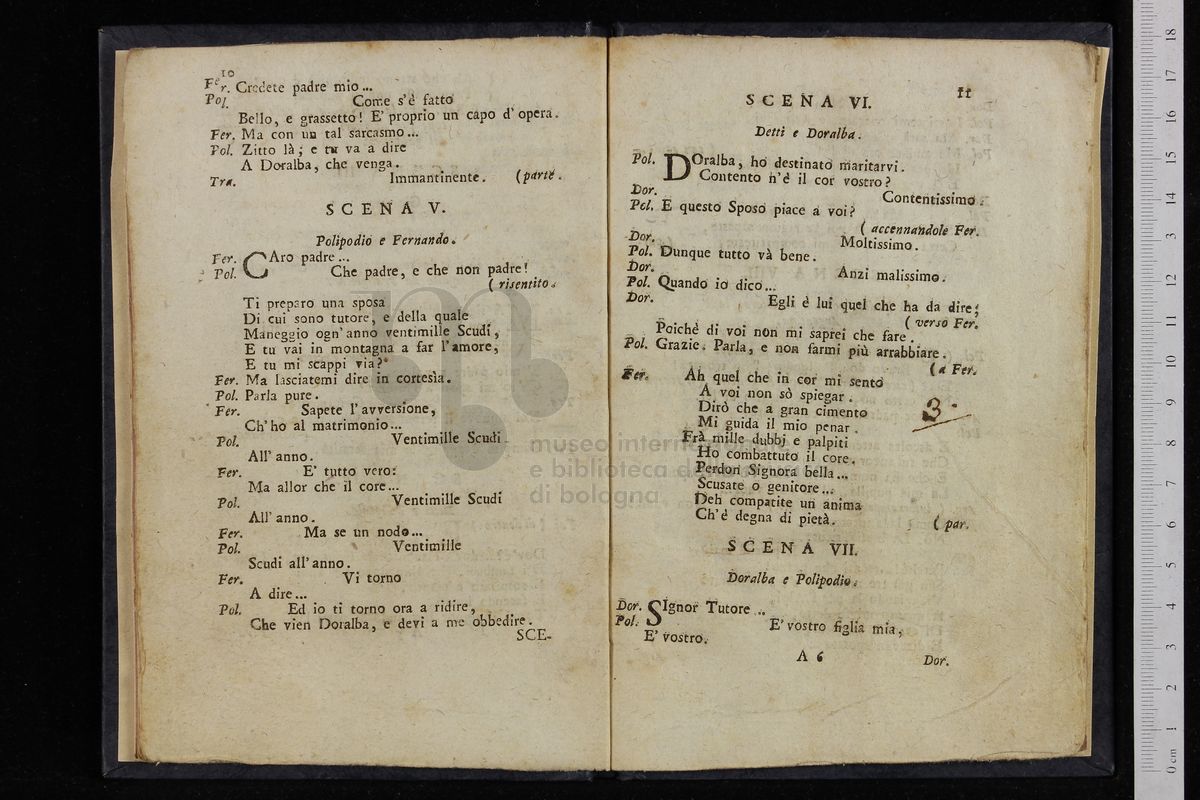 10
Fer. Credete padre mio...
Pol. Come s'è fatto
Bello, e grassetto! E' proprio un capo d'opera.
Fer. Ma con un tal sarcasmo...
Pol. Zitto là; e tu va a dire
A Doralba, che venga.
Tra. Immantinente. (parte.
SCENA V.
Polipodio e Fernando.
Fer. CAro padre...
Pol. Che padre, e che non padre!
( risentito.
Ti preparo una sposa
Di cui sono tutore, e della quale
Maneggio ogn'anno ventimille Scudi,
E tu vai in montagna a far l'amore,
E tu mi scappi via?
Fer. Ma lasciatemi dire in cortesìa.
Pol. Parla pure.
Fer. Sapete l'avversione,
Ch'ho al matrimonio...
Pol. Ventimille Scudi
All'anno.
Fer. E' tutto vero:
Ma allor che il core...
Pol. Ventimille Scudi
All'anno.
Fer. Ma se un nodo...
Pol. Ventimille
Scudi all'anno.
Fer. Vi torno
A dire...
Pol. Ed io ti torno ora a ridire,
Che vien Doralba, e devi a me obbedire.
SCE-
11
SCENA VI.
Detti e Doralba.
Pol. DOralba, ho destinato maritarvi.
Contento n'è il cor vostro?
Dor. Contentissimo.
Pol. E questo Sposo piace a voi?
( accennandole Fer.
Dor. Moltissimo.
Pol. Dunque tutto và bene.
Dor. Anzi malissimo.
Pol. Quando io dico...
Dor. Egli è lui quel che ha da dire;
( verso Fer.
Poichè di voi non mi saprei che fare.
Pol. Grazie. Parla, e non farmi più arrabbiare.
(a Fer.
Fer. Ah quel che in cor mi sento
A voi non sò spiegar.
Dirò che a gran cimento
Mi guida il mio penar.
Frà mille dubbj e palpiti
Ho combattuto il core.
Perdon Signora bella...
Scusate o genitore...
Deh compatite un anima
Ch'è degna di pietà. ( par.
3.
SCENA VII.
Doralba e Polipodio.
Dor. SIgnor Tutore...
Pol. E' vostro figlia mia,
E' vostro.
A 6
Dor.
museo inter
e biblioteca d
di bologna
0 cm 1 2 3 4 5 6 7 8 9 10 11 12 13 14 15 16 17 18